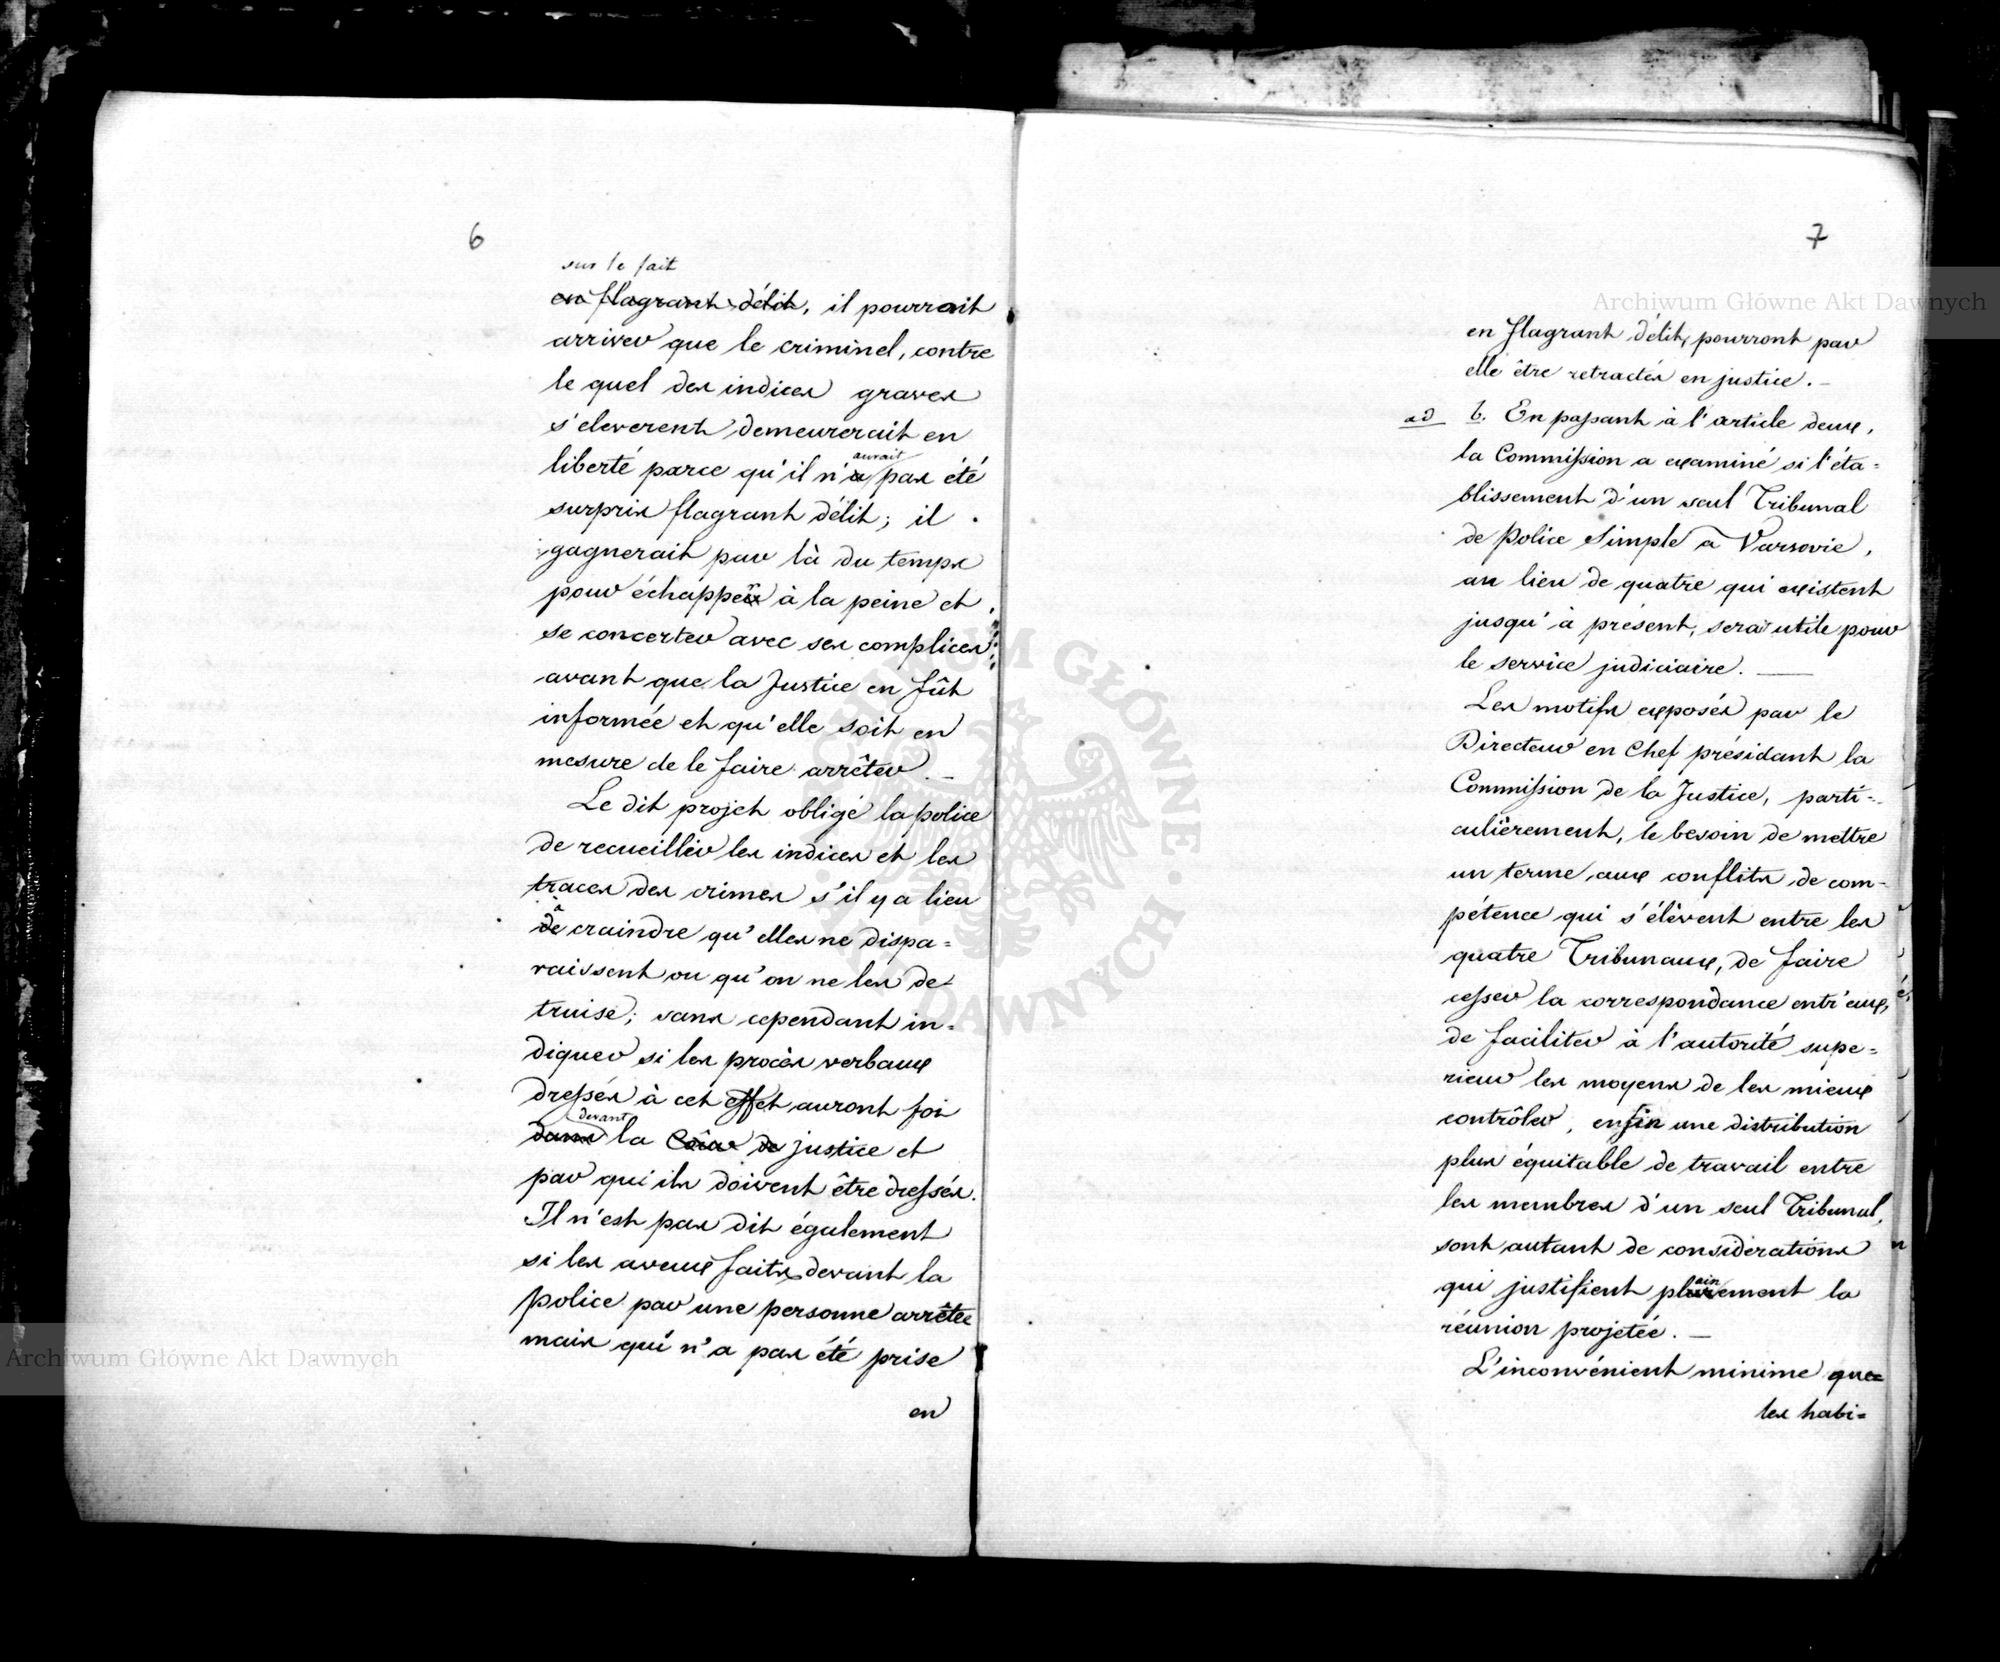 6
sur le fait
en flagrant délit, il pourrait
arriver que le criminel, contre
le quel des indices graves
s'eleverent demeurerait en
aurait
liberté parce qu'il n'a pas été
surpris flagrant délit; il
gagnerait par là du temps
pour échapper à la peine et
se concerter avec ses complices
avant que la Justice en fût
informée et qu'elle soit en
mesure de le faire arrêter. _
Le dit projet obligé la police
de recueillir les indices et les
traces des crimes s'il y a lieu
à
de craindre qu'elles ne dispa=
raissent ou qu'on ne les de=
truise; sans cependant in=
diquer si les procès verbaux
dressés à cet effet auront foi
devant
dans la Cour de justice et
par qui ils doivent être dressés.
Il n'est pas dit également
si les aveux faits devant la
police par une personne arrêtée
mais qui n'a pas été prise
en
7
en flagrant délit, pourront par
elle être retractés en justice. _
ad b. En passant à l'article deux,
la Commission a examiné si l'éta=
blissement d'un seul Tribunal
de Police Simple a Varsovie,
au lieu de quatre qui existent
jusqu'à présent, serait utile pour
le service judiciaire. __
Les motifs exposés par le
Directeur en Chef présidant la
Commission de la Justice, parti=
culièrement, le besoin de mettre
un terme aux conflits de com=
pétence qui s'élèvent entre les
quatre Tribunaux, de faire
cesser la correspondance entr'eux,
de faciliter à l'autorité supe=
rieur les moyens de les mieux
contrôler, enfin une distribution
plus équitable de travail entre
les membres d'un seul Tribunal,
sont autant de considérations
ain
qui justifient plenement la
réunion projetée. _
L'inconvénient minime que=
les habi=
Archiwum Główne Akt Dawnych
Archiwum Główne Akt Dawnych
ARCHIWUM GŁÓWNE AKT DAWNYCH